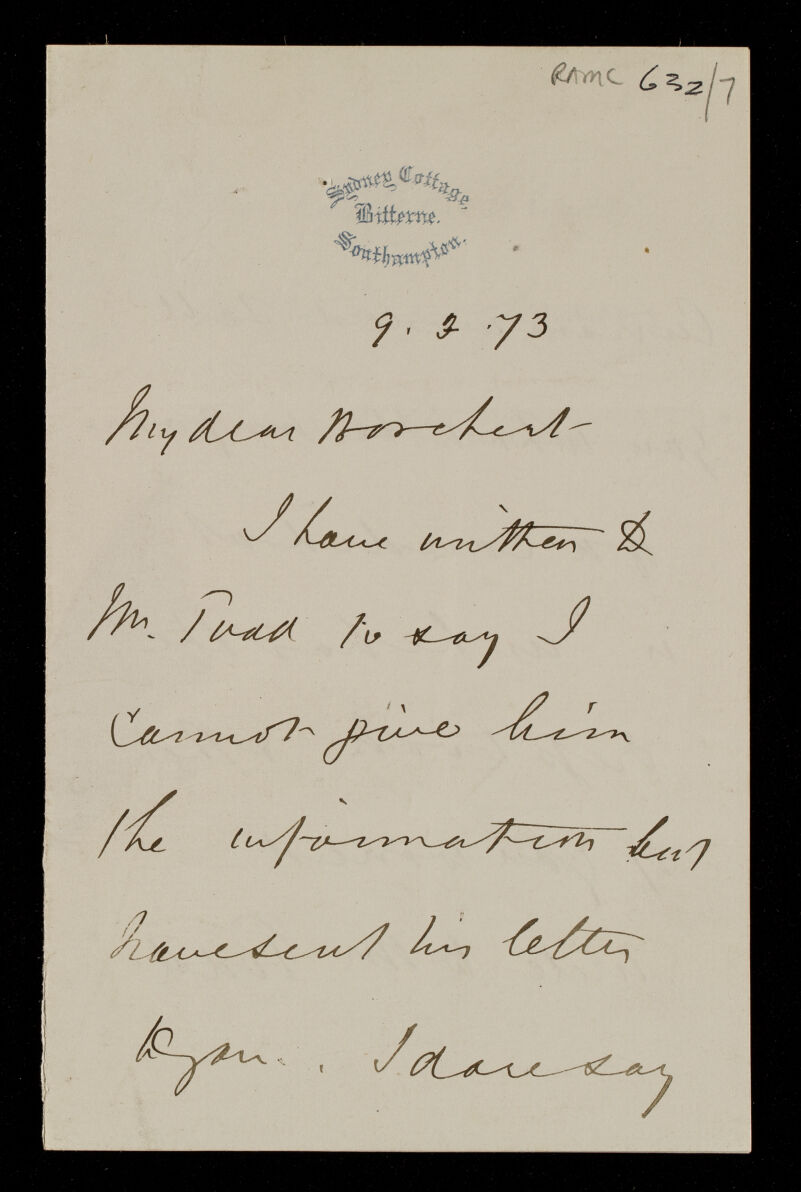 RAMC 632/7
Sydney Cottage,
Bitterne.
Southampton.
9. 2 .73
My dear
I have written to
Mr. Todd to say I
cannot give him
the information but
have sent his letter
to you. . I dare say